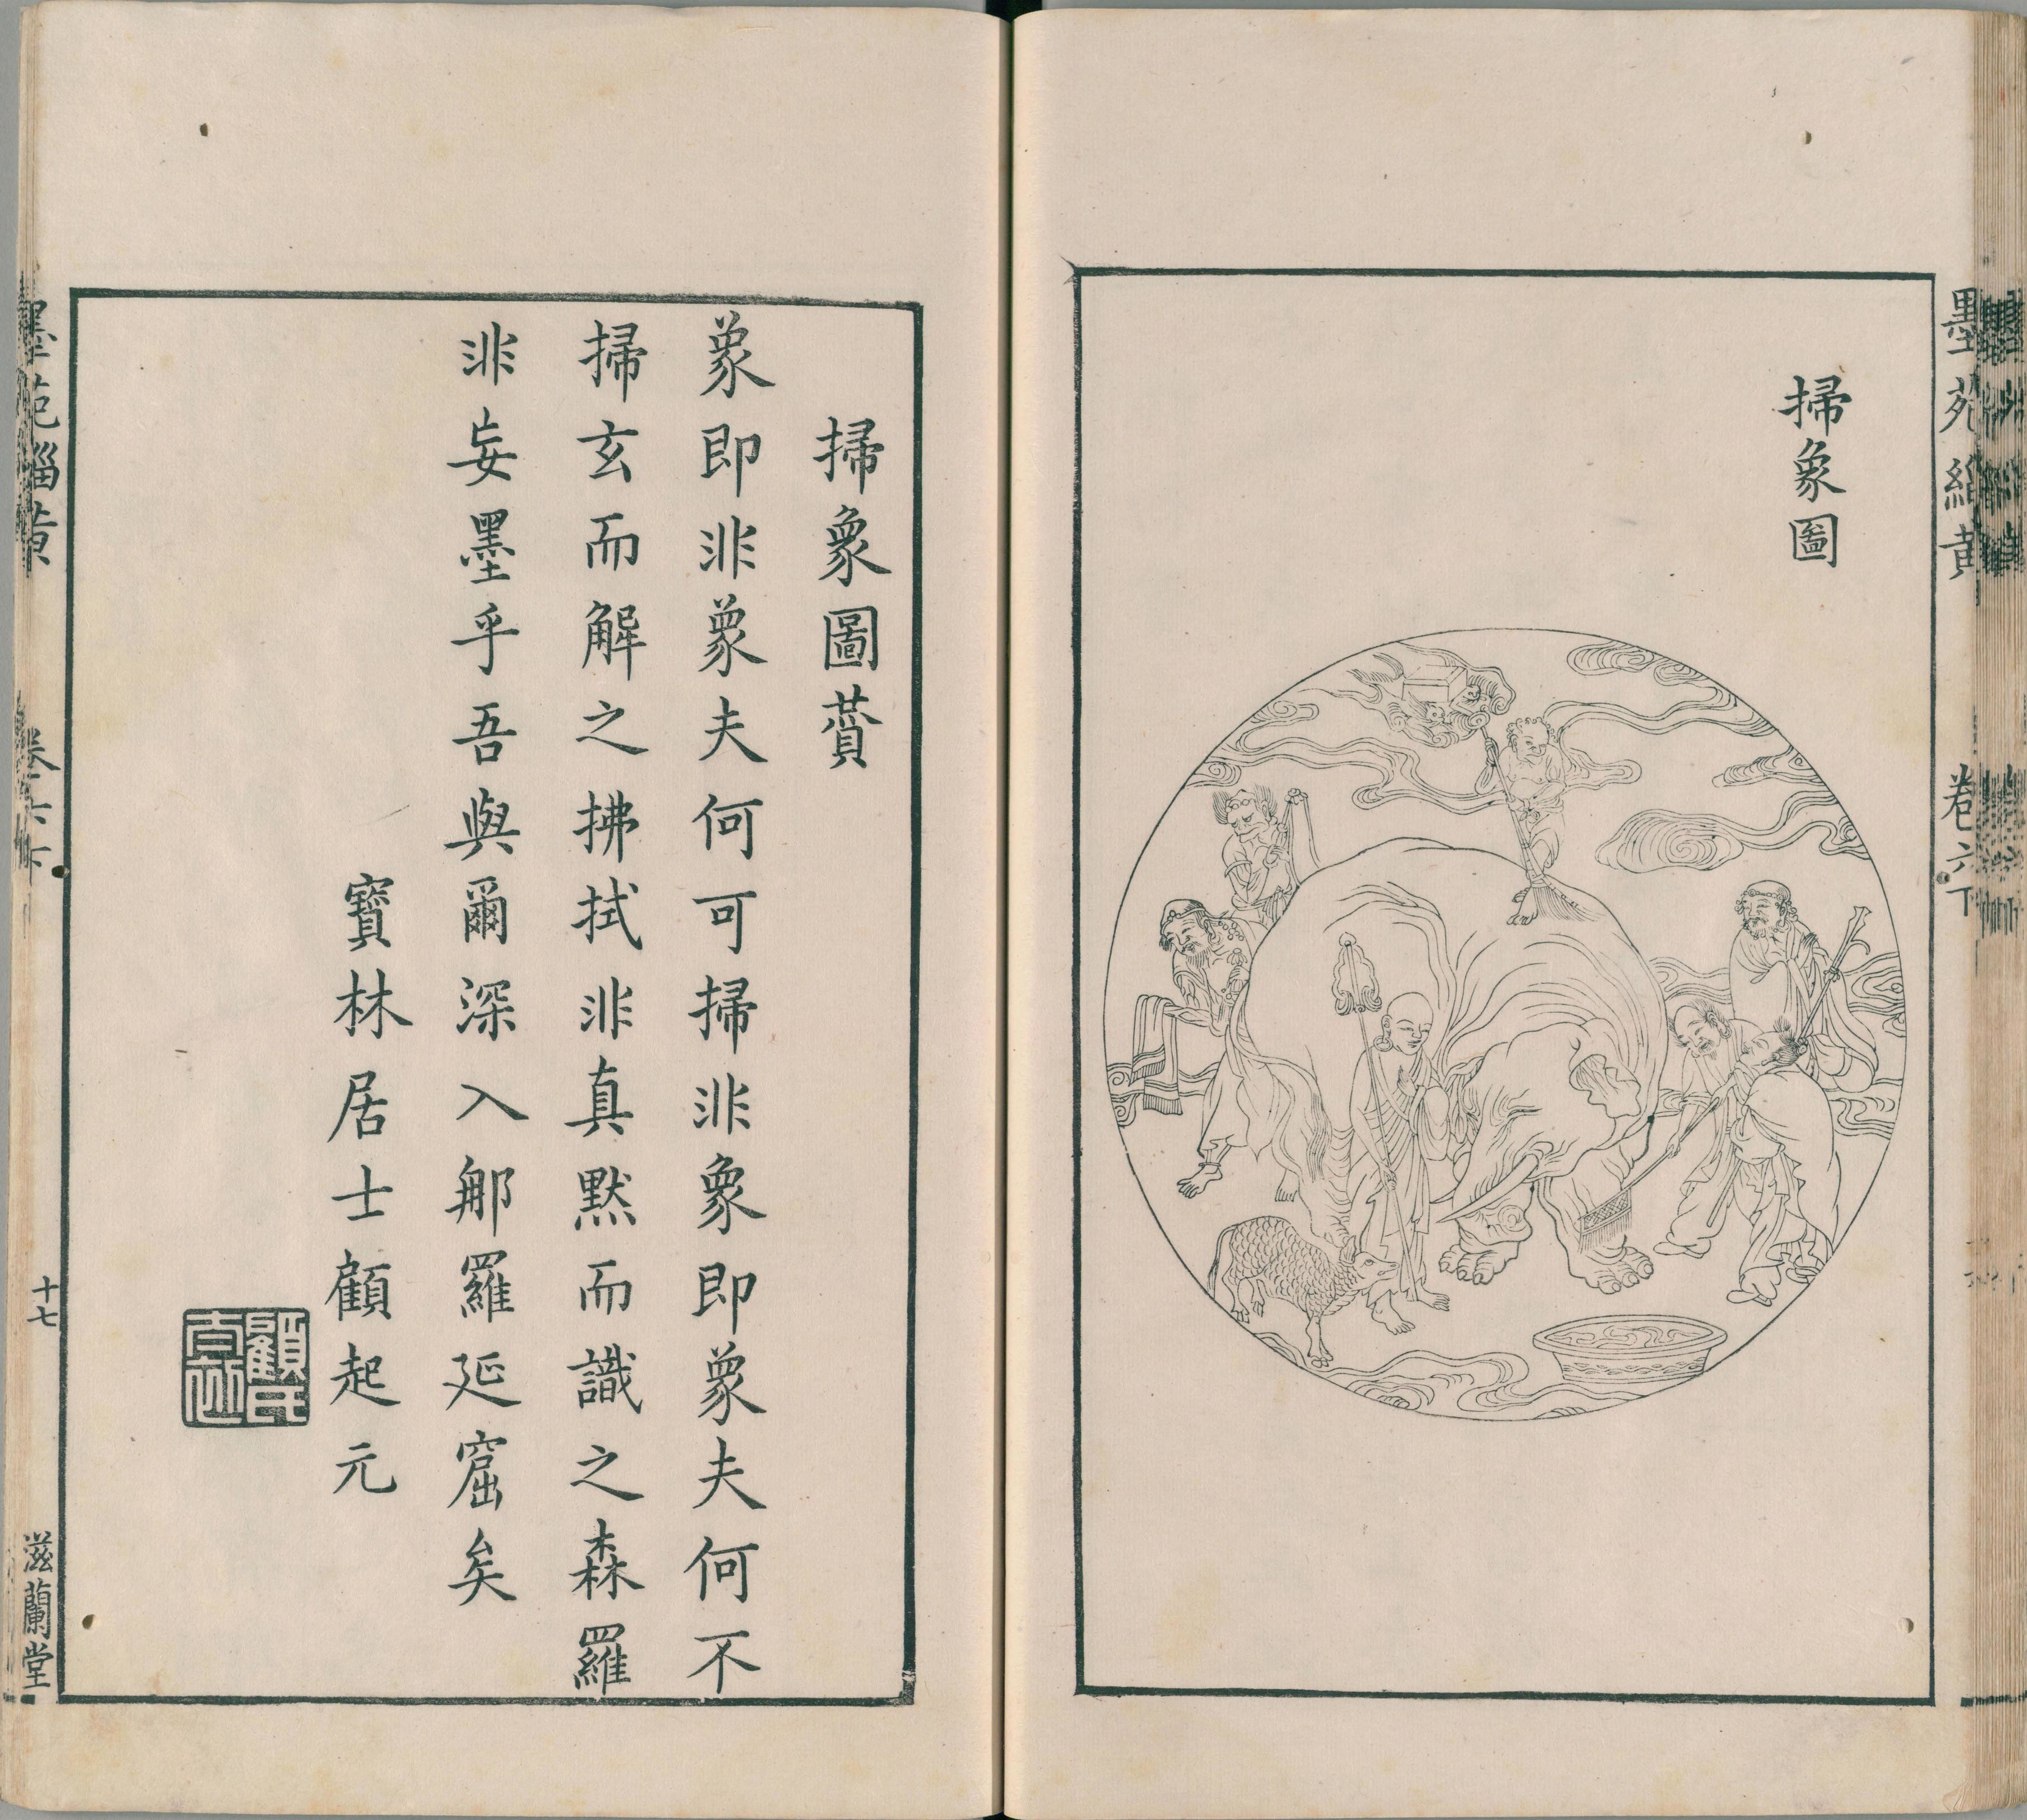 墨苑緇黃
卷六下
掃象圖
掃象圖贊
象即非象夫何可掃非象即象夫何不
掃玄而解之拂拭非真默而識之森羅
非妄墨乎吾與爾深入那羅延窟矣
寶林居士顧起元
墨苑緇黃
卷六下
十七
滋蘭堂